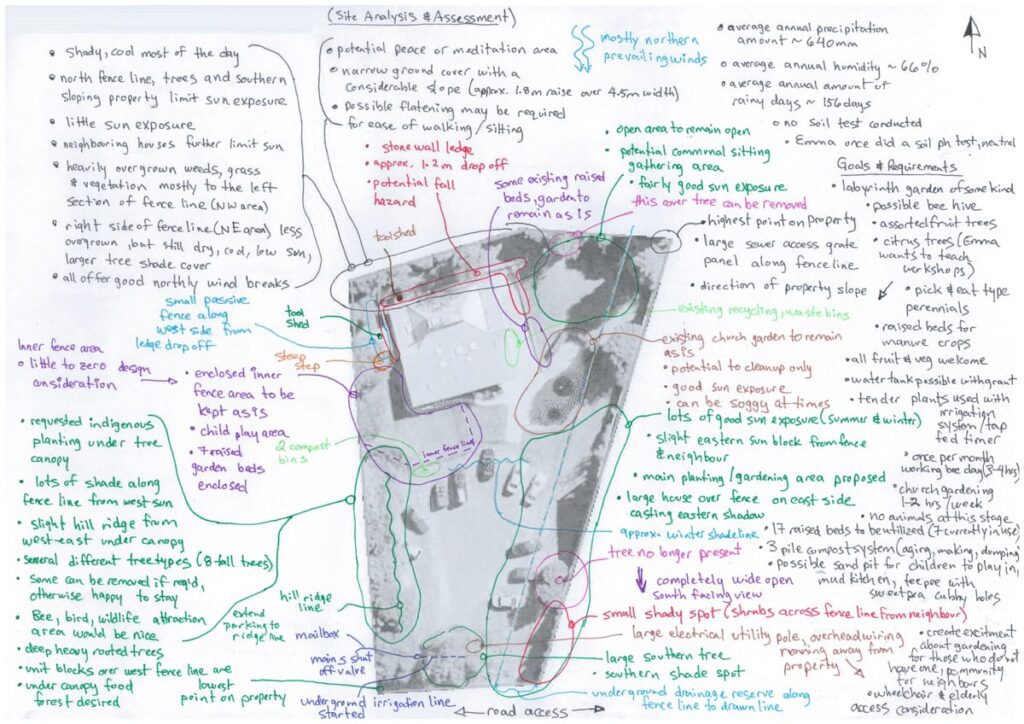 (Site Analysis & Assessment)
• shady, cool most of the day
• north fence line, trees and southern
sloping property limit sun exposure
• little sun exposure
• neighbouring houses further limit sun
• heavily overgrown weeds, grass
& vegetation mostly to the left
section of fence line (NW area)
• right side of fence line (NE area) less
overgrown, but still dry, cool, low sun,
larger tree shade cover
• all offer good northly wind breaks
• potential peace or meditation area
• narrow ground cover with a
considerable slope (approx. 1.8m raise over 4.5m width)
• possible flatening may be required
for ease of walking/sitting
mostly northern
prevailing winds
• average annual precipitation
amount ~ 640mm
• average annual humidity ~ 66%
• average annual amount of
rainy days ~ 156 days
• no soil test conducted
• Emma once did a soil ph test, neutral
N
• stone wall ledge
• approx. 1.2m drop off
• potential fall
hazard
some existing raised
beds, garden to
remain as is
• open area to remain open
• potential communal sitting
gathering area
• fairly good sun exposure
this over tree can be removed
• highest point on property
• large sewer access grate
panel along fence line
• direction of property slope
Goals & Requirements
• labyrinth garden of some kind
• possible bee hive
• assorted fruit trees
• citrus trees (Emma
wants to teach
workshops)
• pick & eat type
perennials
• raised beds for
manure crops
• all fruit & veg welcome
• water tank possible with grant
• tender plants used with
irrigation
system/tap
fed timer
• once per month
working bee day (3-4hrs)
• church gardening
1-2 hrs/week
• no animals at this stage
• 17 raised beds to be utilized (7 currently in use)
• 3 pile compost system (aging, making, dumping)
• possible sand pit for children to play in,
mud kitchen, teepee with
sweetpea cubby holes
• create excitment
about gardening
for those who do not
have one, community
for neighbours
• wheelchair & elderly
access consideration
toolshed
small passive
fence along
west side from
ledge drop off
tool
shed
steep
step
existing recycling, waste bins
existing church garden to remain
as is
• potential to cleanup only
• good sun exposure
• can be soggy at times
Inner fence area
• little to zero design
consideration
• enclosed inner
fence area to be
kept as is
• child play area
• 7 raised
garden beds
enclosed
2 compost
bins
inner fence line
• lots of good sun exposure (summer & winter)
• slight eastern sun block from fence
& neighbour
• main planting/gardening area proposed
• large house over fence on east side
casting eastern shadow
approx. winter shadeline
tree no longer present
completely wide open
south facing view
• small shady spot (shrubs across fence line from neighbour)
• large electrical utility pole, overhead wiring
running away from
property
• large southern tree
• southern shade spot
underground drainage reserve along
fence line to drawn line
• requested indigenous
planting under tree
canopy
• lots of shade along
fence line from west sun
• slight hill ridge from
west-east under canopy
• several different tree types (8 tall trees)
• Some can be removed if req'd,
otherwise happy to stay
• Bee, bird, wildlife attraction
area would be nice
• deep heavy rooted trees
• unit blocks over west fence line are
• under canopy food
forest desired
extend
parking to
ridge line
hill ridge
line
mailbox
mains shut
off valve
lowest
point on property
underground irrigation line
started
road access